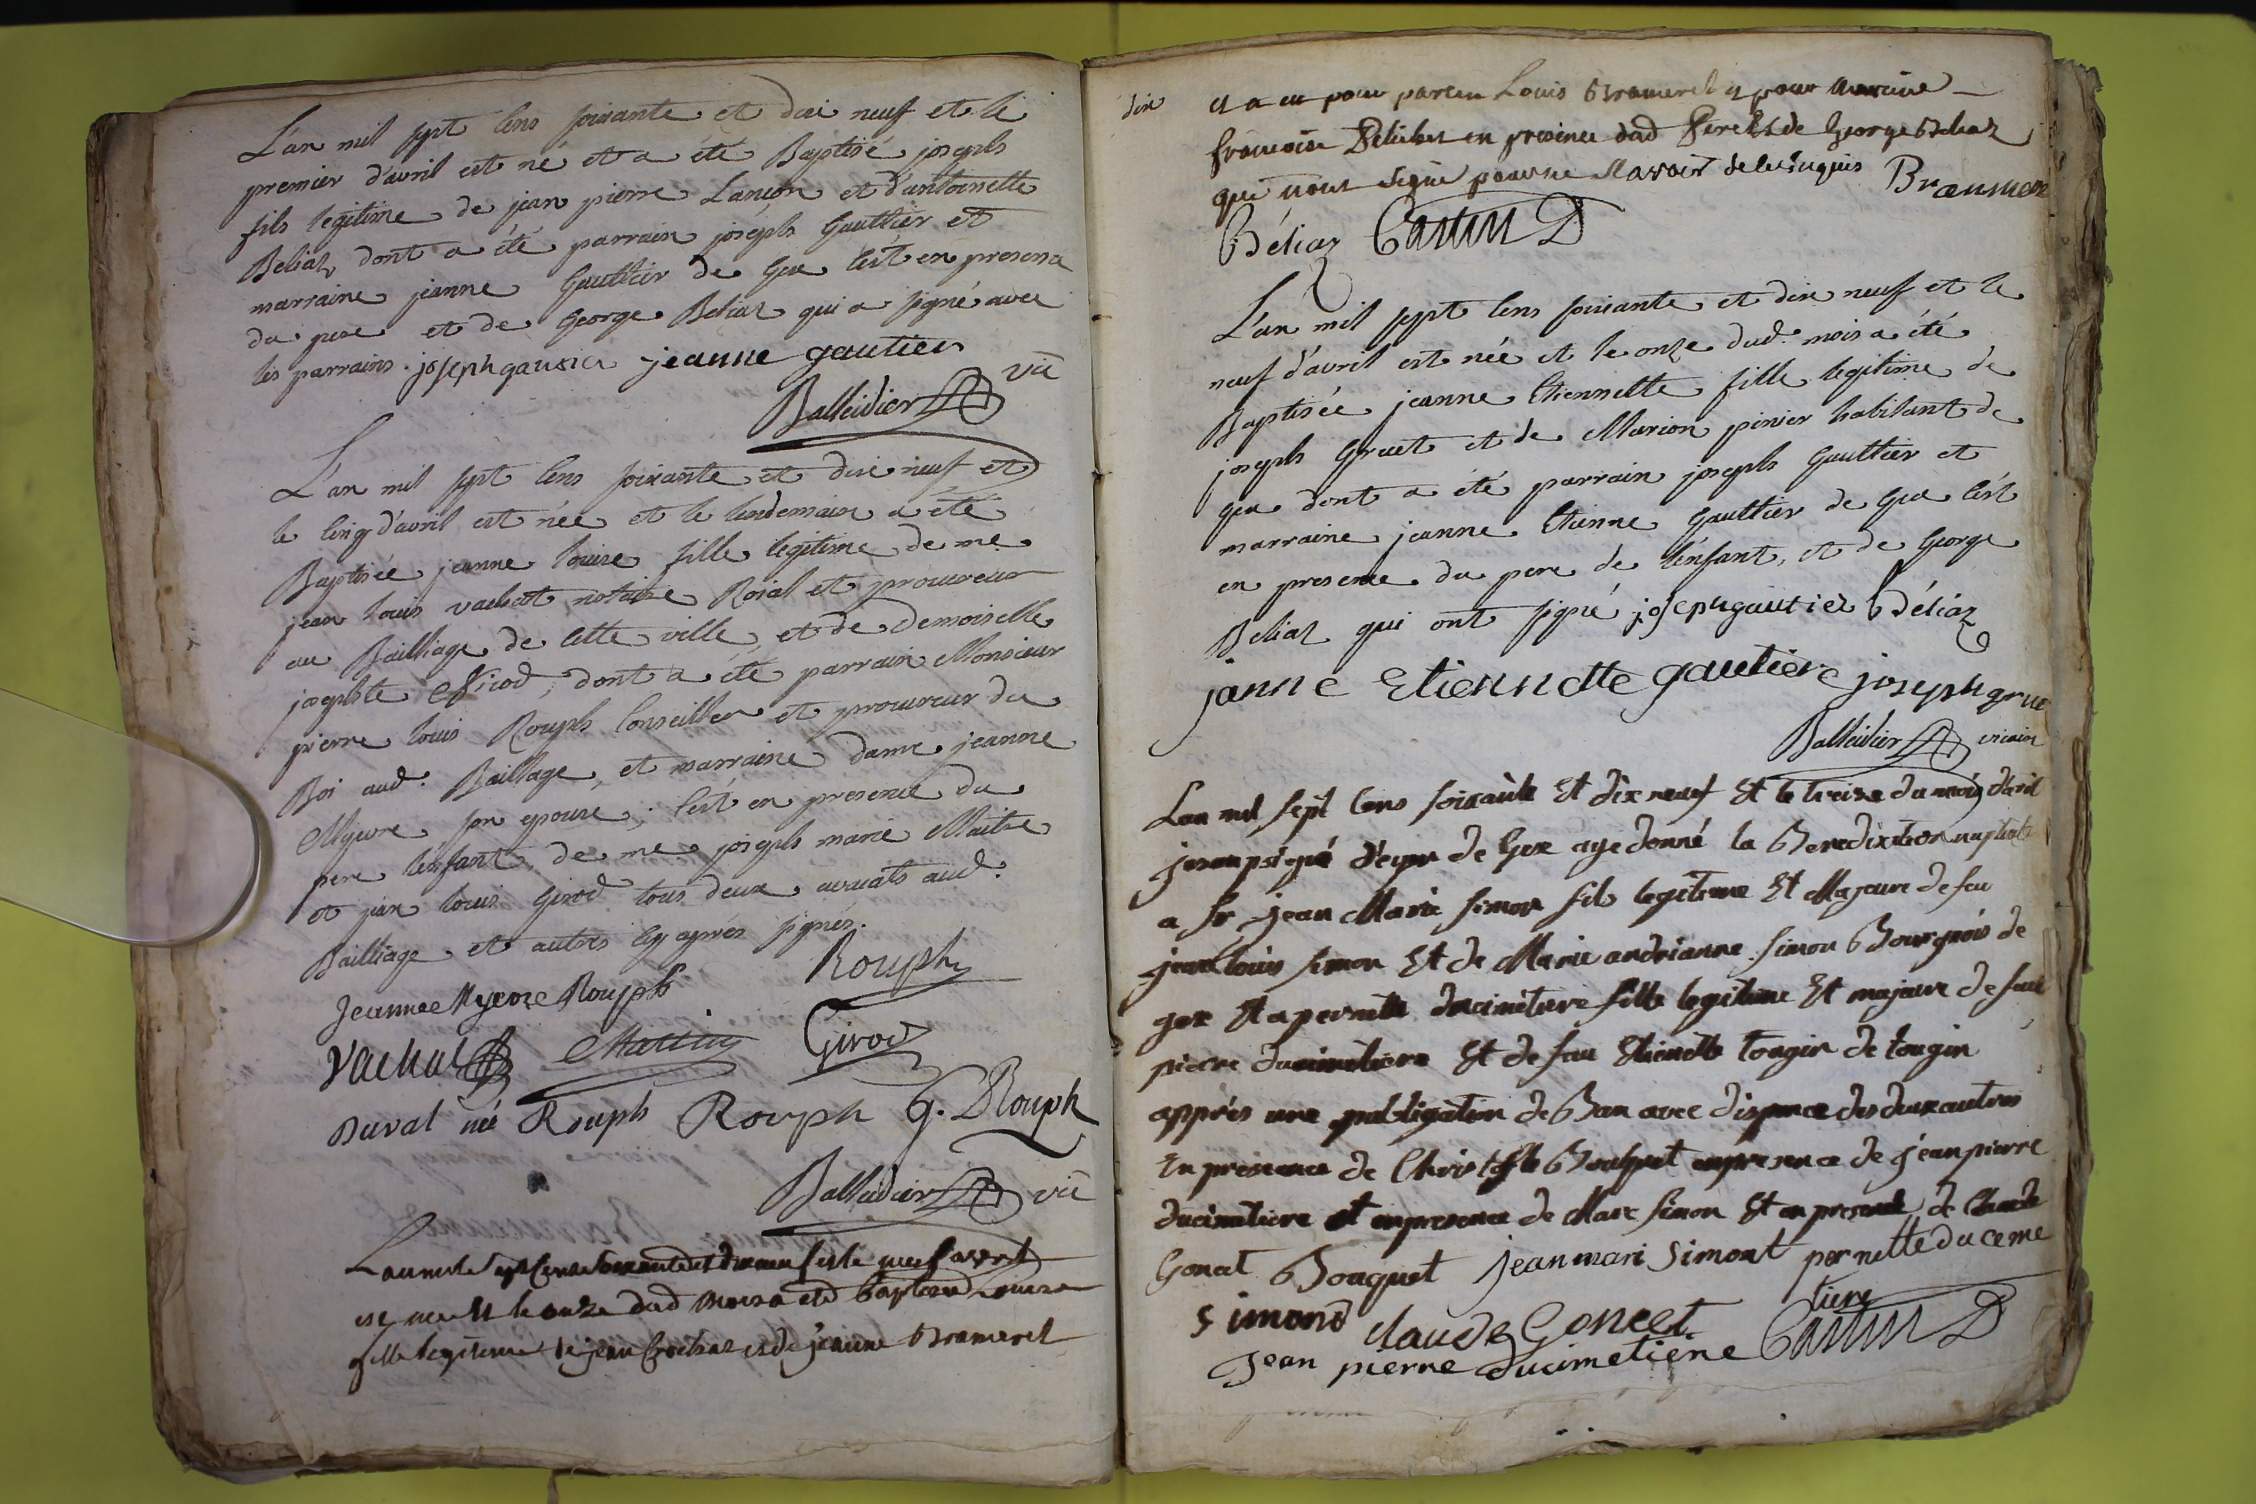 L'an mil sept cens soixante et dix neuf et le
premier d'avril est né et a été Baptisé joseph
fils legitime de jean pierre Lançon et d'antoinette
Beliaz, dont a été parrain joséph Gaultier et
marraine jeanne Gaultier de Gex c'est en presence
du pere et de George Beliaz qui a signé avec
les parrains. joseph gautier jeanne gautier
Balleidier vic
L'an mil sept cens soixante et dix neuf et
le cinq d'avril est née et le lendemain a été
Baptisée jeanne louise fille legitime de me
jean louis vachat notaire Roial et procureur
au Bailliage de cette ville, et de demoiselle
josephte Nicod, dont a été parrain Monsieur
pierre louis Rouph Conseiller et procureur du
Roi aud. Bailliage, et marraine dame jeanne
Myevre son epouse; c'est en presence du
pere l'enfant, de me joseph marie Martin
et jean louis Girod tous deux avocats aud.
Bailliage et autres cy après signés.
Jeanne Myevre Rouph Rouph
Vachat Martin Girod
Duval né Rouph Rouph G. D Rouph
Balleidier vic
L'an mil sept cens soixante et dix neuf et le neuf avril
est née et le onze dud mois a été baptisée Louise
fille legitime de jean Crochat et de jeanne Brameret
dix et a eu pour parein Louis Brameret et pour mareine
francoise en presence dud Pere et de George Beliaz
qui nont signé pour ne savoir de ce requis Bramerel
Béliaz Castin D
L'an mil sept cens soixante et dix neuf et le
neuf d'avril est née et le onze dud. mois a été
Baptisée jeanne Etiennette fille legitime de
joseph Gruet et de Marion pinier habitant de
gex dont a été parrain joseph Gaultier et
marraine jeanne Etienne Gaultier de Gex c'est
en presence du pere de l'enfant, et de George
Beliaz qui ont signé joseph gautier Béliaz
janne Etiennette gautiere joseph grue
Balleidier vicaire
Lan mil sept cens soixante Et dix neuf Et le treize du mois d'avril
je soussigné doyen de Gex aye donné la Benedixtion nuptiale
a Sr jean Marie Simon fils legitime Et Majeur de feu
jean louis Simon Et de Marie andrianne Simon Bourgeois de
gex Et a pernette ducimetiere fille legitime Et majeure de feu
pierre ducimetiere Et de feu Etienette tougin de tougin
apprés une publigation de Ban avec dispence des deux autres
En presence de Christofle Bouquet en presence de jean pierre
ducimetiere et en presence de Marc Simon Et en presence de Claude
Goncet Bouquet jean mari Simont pernette du ceme
tiere
Simond Claude Goncet
Jean pierre ducimetiere Castin D